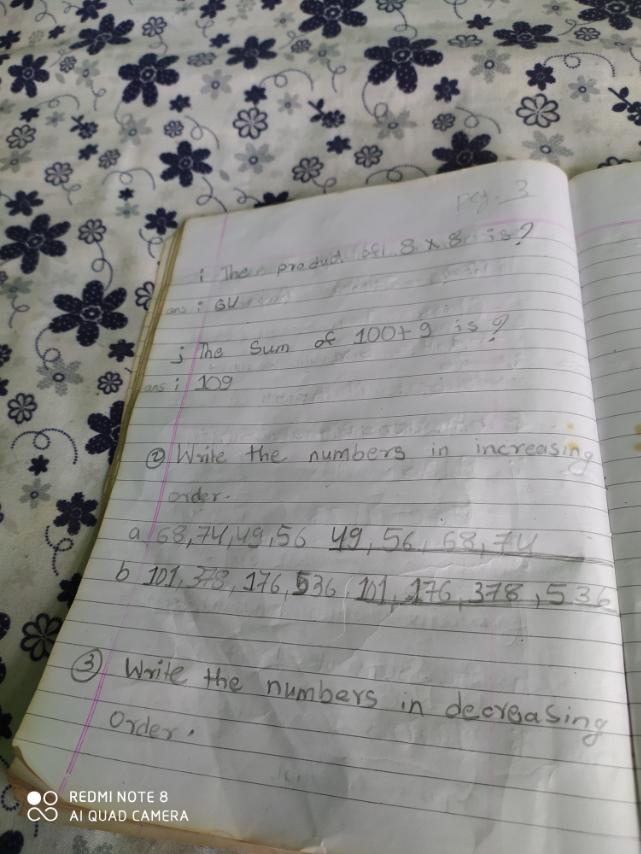 pg. 3
i The product of 8 x 8 is?
ans : 64
j The Sum of 100+9 is ?
ans : 109
② Write the numbers in increasing
order.
a 68,74,49,56 49, 56, 68, 74
b 101, 378, 176, 536 101, 176, 378, 536
③ Write the numbers in decreasing
order.
REDMI NOTE 8
AI QUAD CAMERA